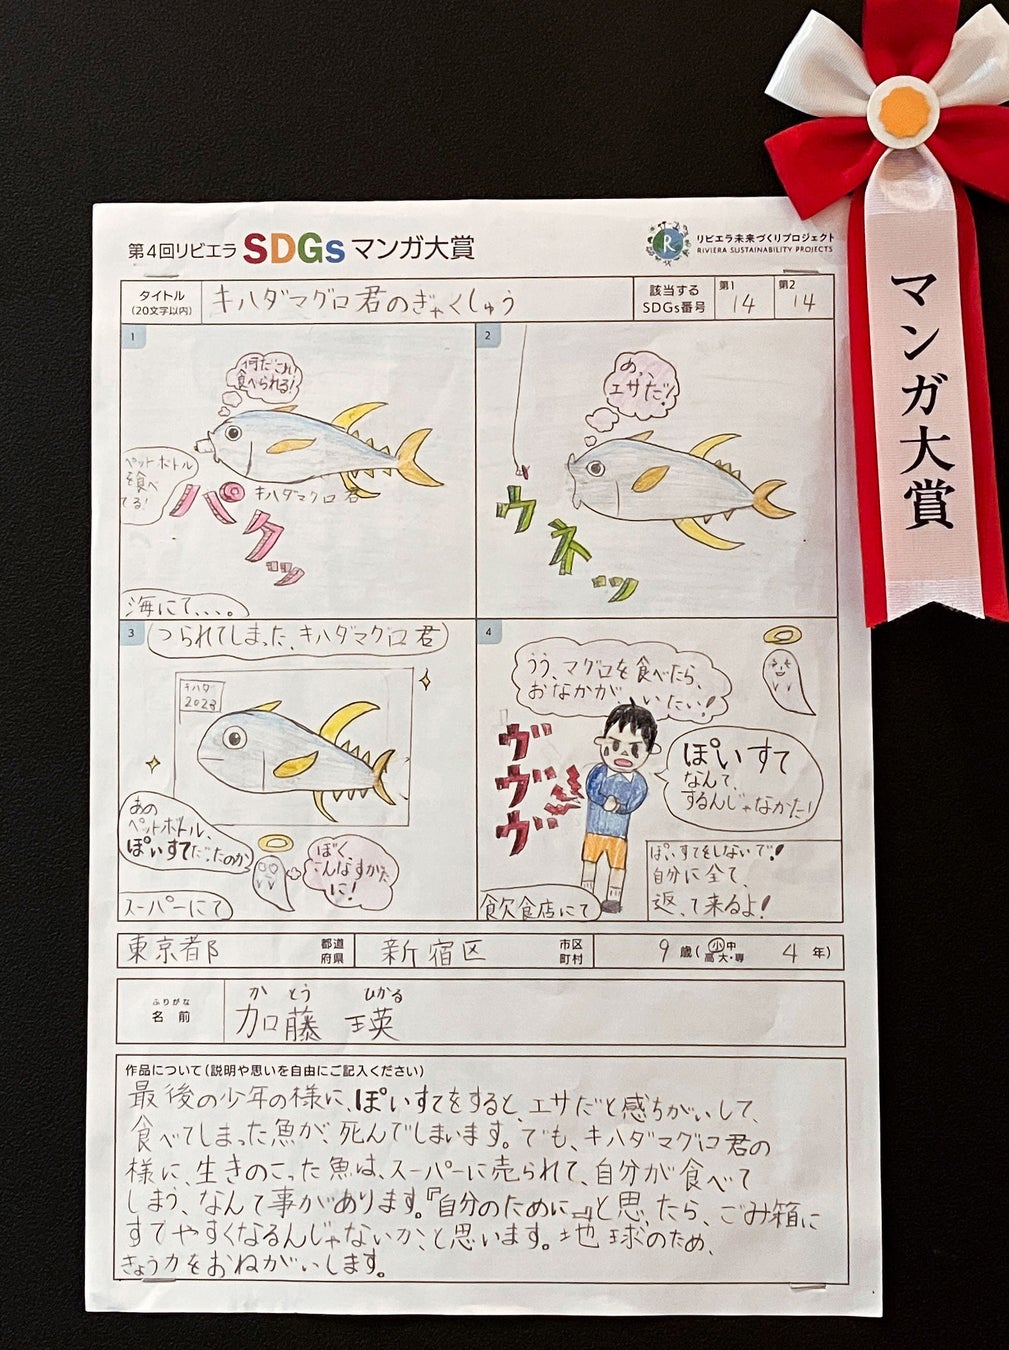 第4回リビエラ SDGs マンガ大賞
リビエラ未来づくりプロジェクト
RIVIERA SUSTAINABILITY PROJECTS
マンガ大賞
タイトル
(20文字以内)
キハダマグロ君のぎゃくしゅう
該当する
SDGs番号
第1
14
第2
14
1
何だこれ
食べられる!
ペットボトル
を食べ
てる!
パクッ
キハダマグロ君
海にて、、、。
2
あ、、
エサだ!
ウネッ
3
つられてしまった、キハダマグロ君
キハダ
2023
あの
ペットボトル、
ぽいすてだったのか
ぼく、
こんなすがた
に!
スーパーにて
4
うう、マグロを食べたら、
おなかがいたい!
ヴヴヴ
ぽいすて
なんて、
するんじゃなかた!
ぽいすてをしないで!
自分に全て、
返って来るよ!
飲食店にて
東京都
都道
府県
新宿区
市区
町村
9 歳(小中
高大・専
4 年)
ふりがな
名 前
かとう ひかる
加藤 瑛
作品について(説明や思いを自由にご記入ください)
最後の少年の様に、ぽいすてをすると、エサだと感ちがいして、
食べてしまった魚が、死んでしまいます。でも、キハダマグロ君の
様に、生きのこった魚は、スーパーに売られて、自分が食べて
しまう、なんて事があります。『自分のために』と思ったら、ごみ箱に
すてやすくなるんじゃないか、と思います。地球のため、
きょう力をおねがいします。